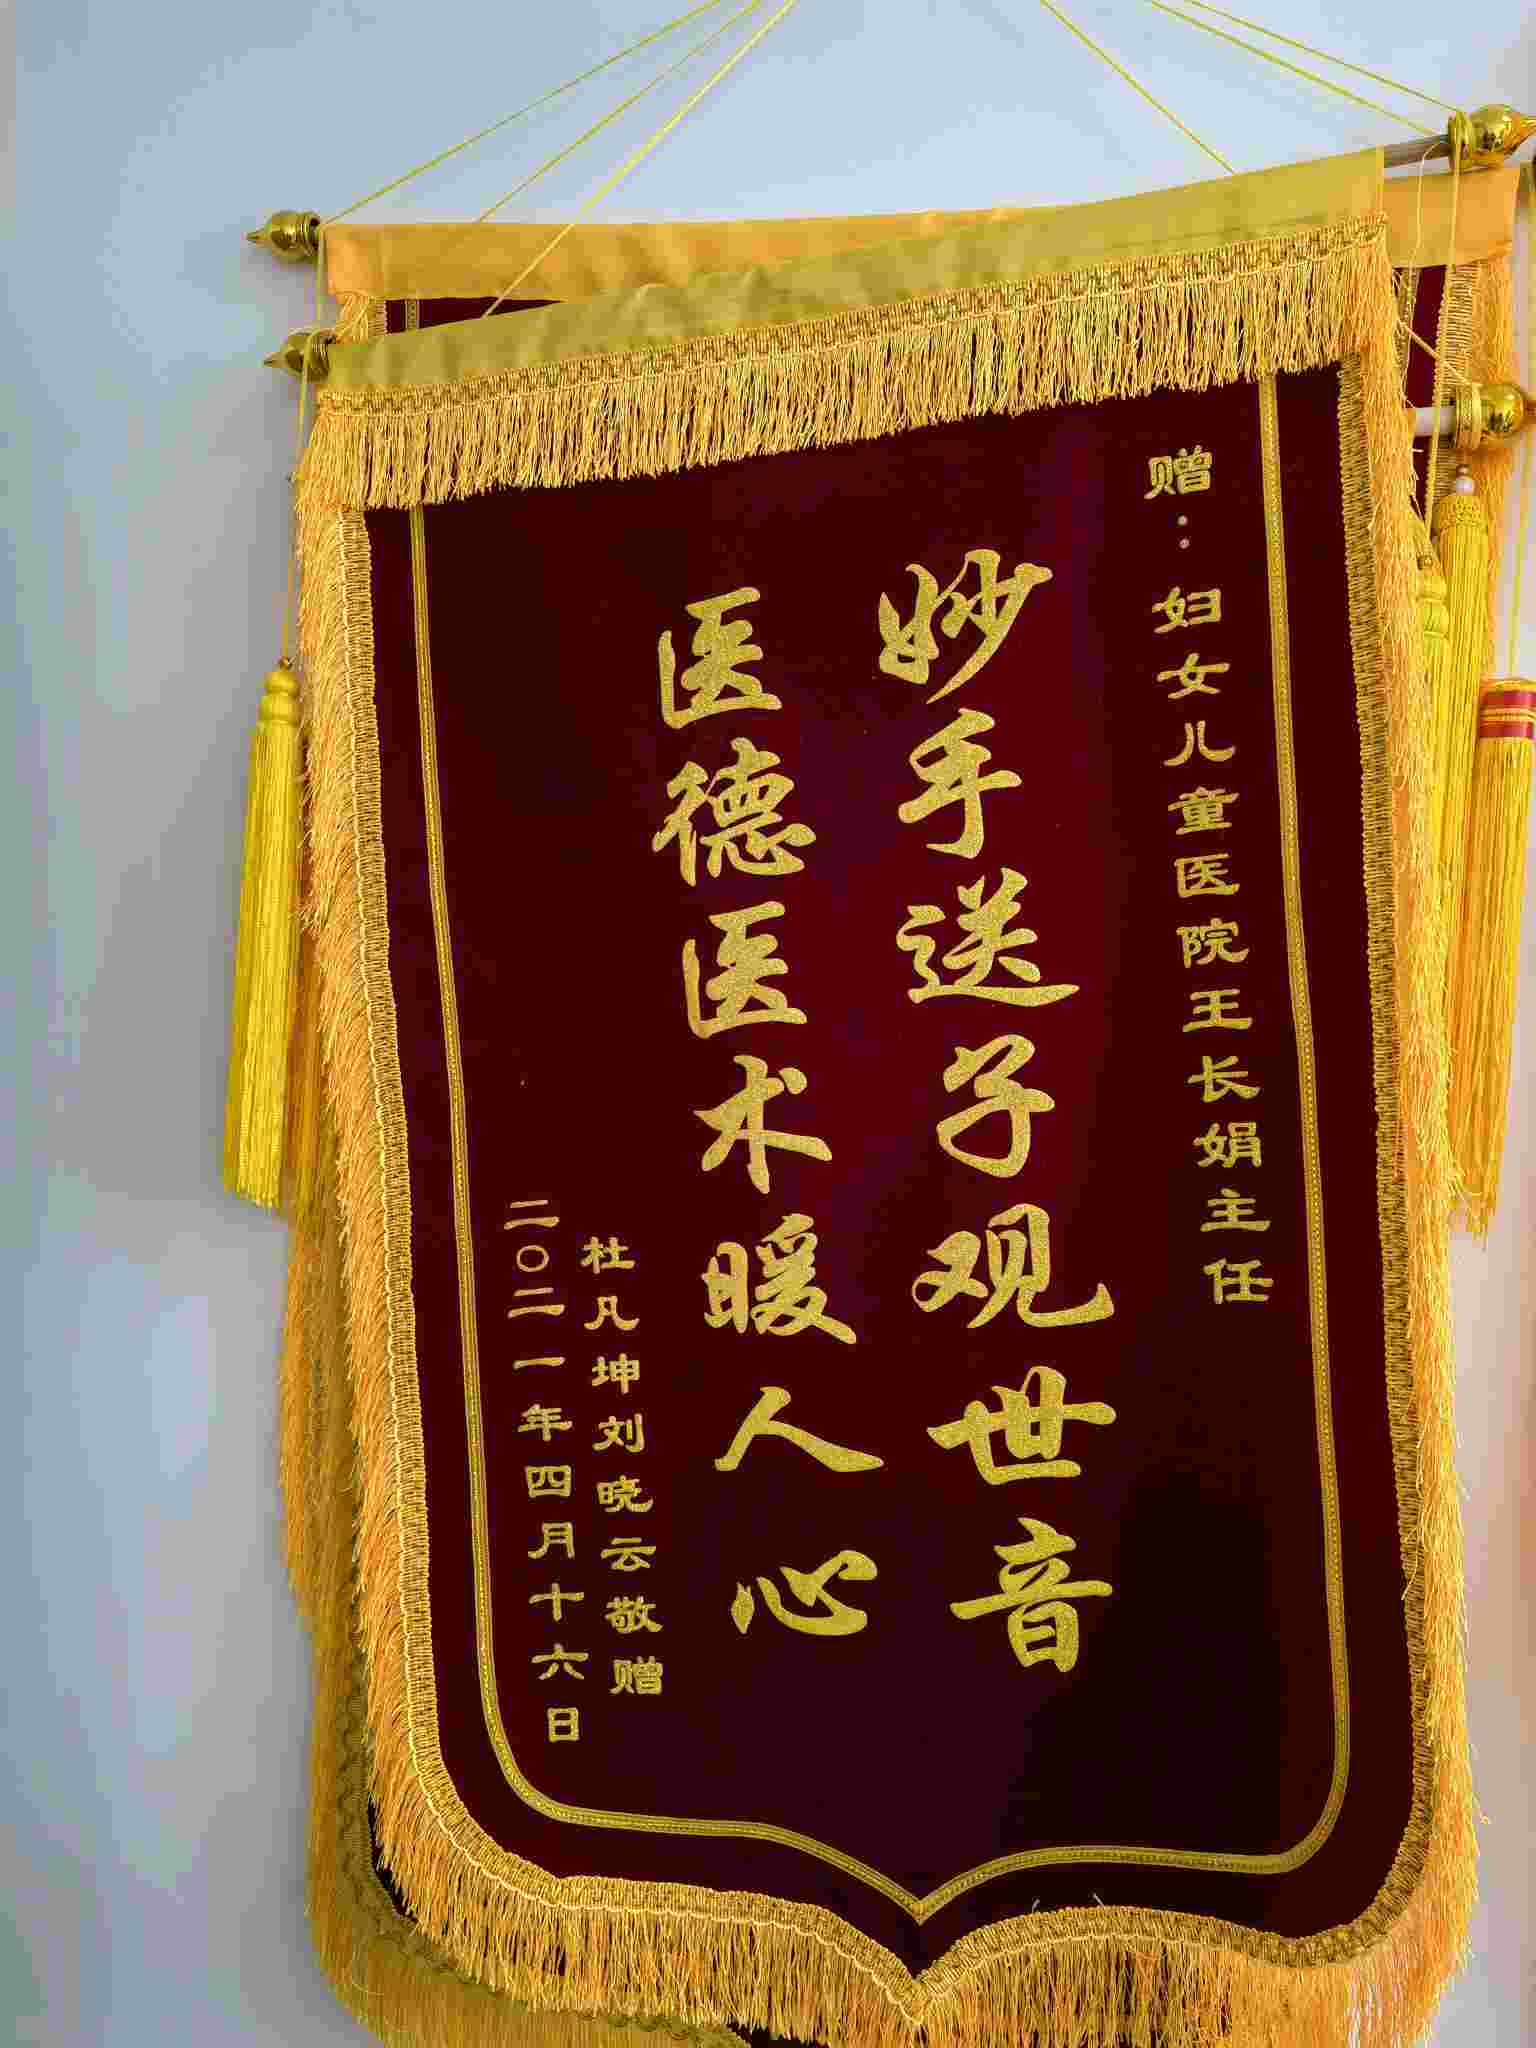 赠：妇女儿童医院王长娟主任
妙手送子观世音
医德医术暖人心
杜凡坤刘晓云敬赠
二〇二一年四月十六日